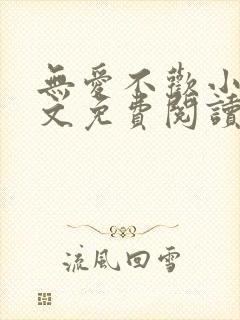 無愛不歡小
文免費閱讀
流風回雪